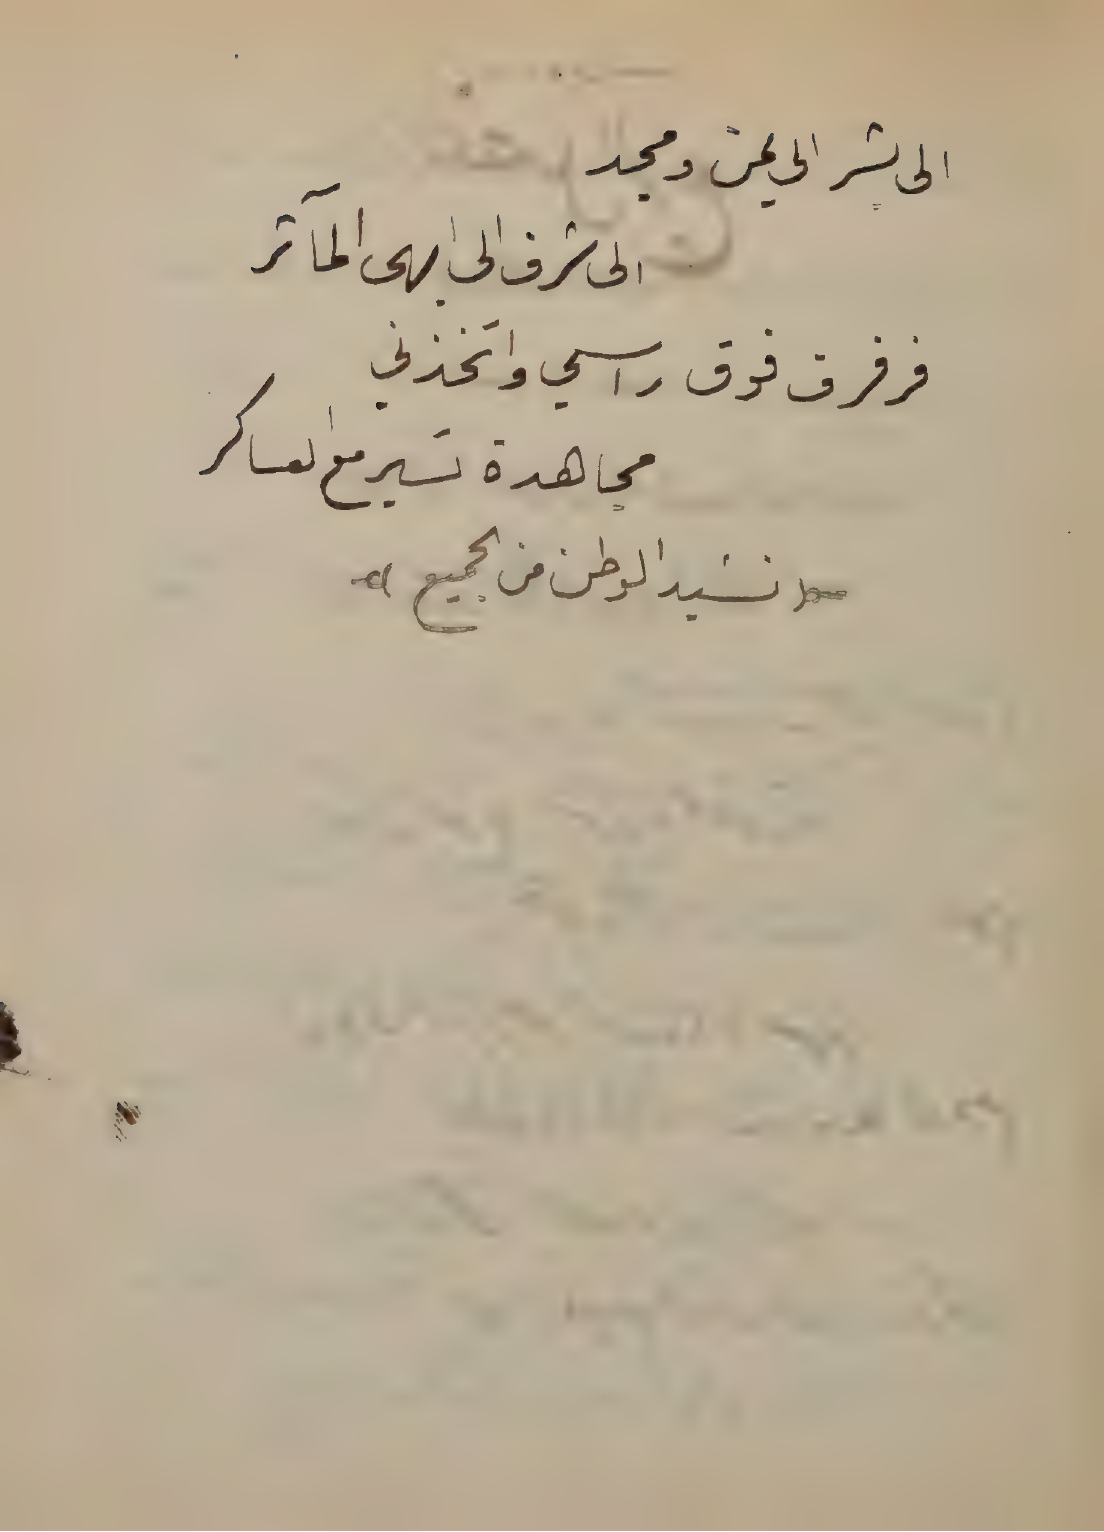 الى بشر الى يمن ومجد
الى شرف الى ابهى المآثر
فرفرق فوق راسي واتخذني
مجاهدة تسير مع العساكر
﴿ نشيد الوطن من الجميع ﴾